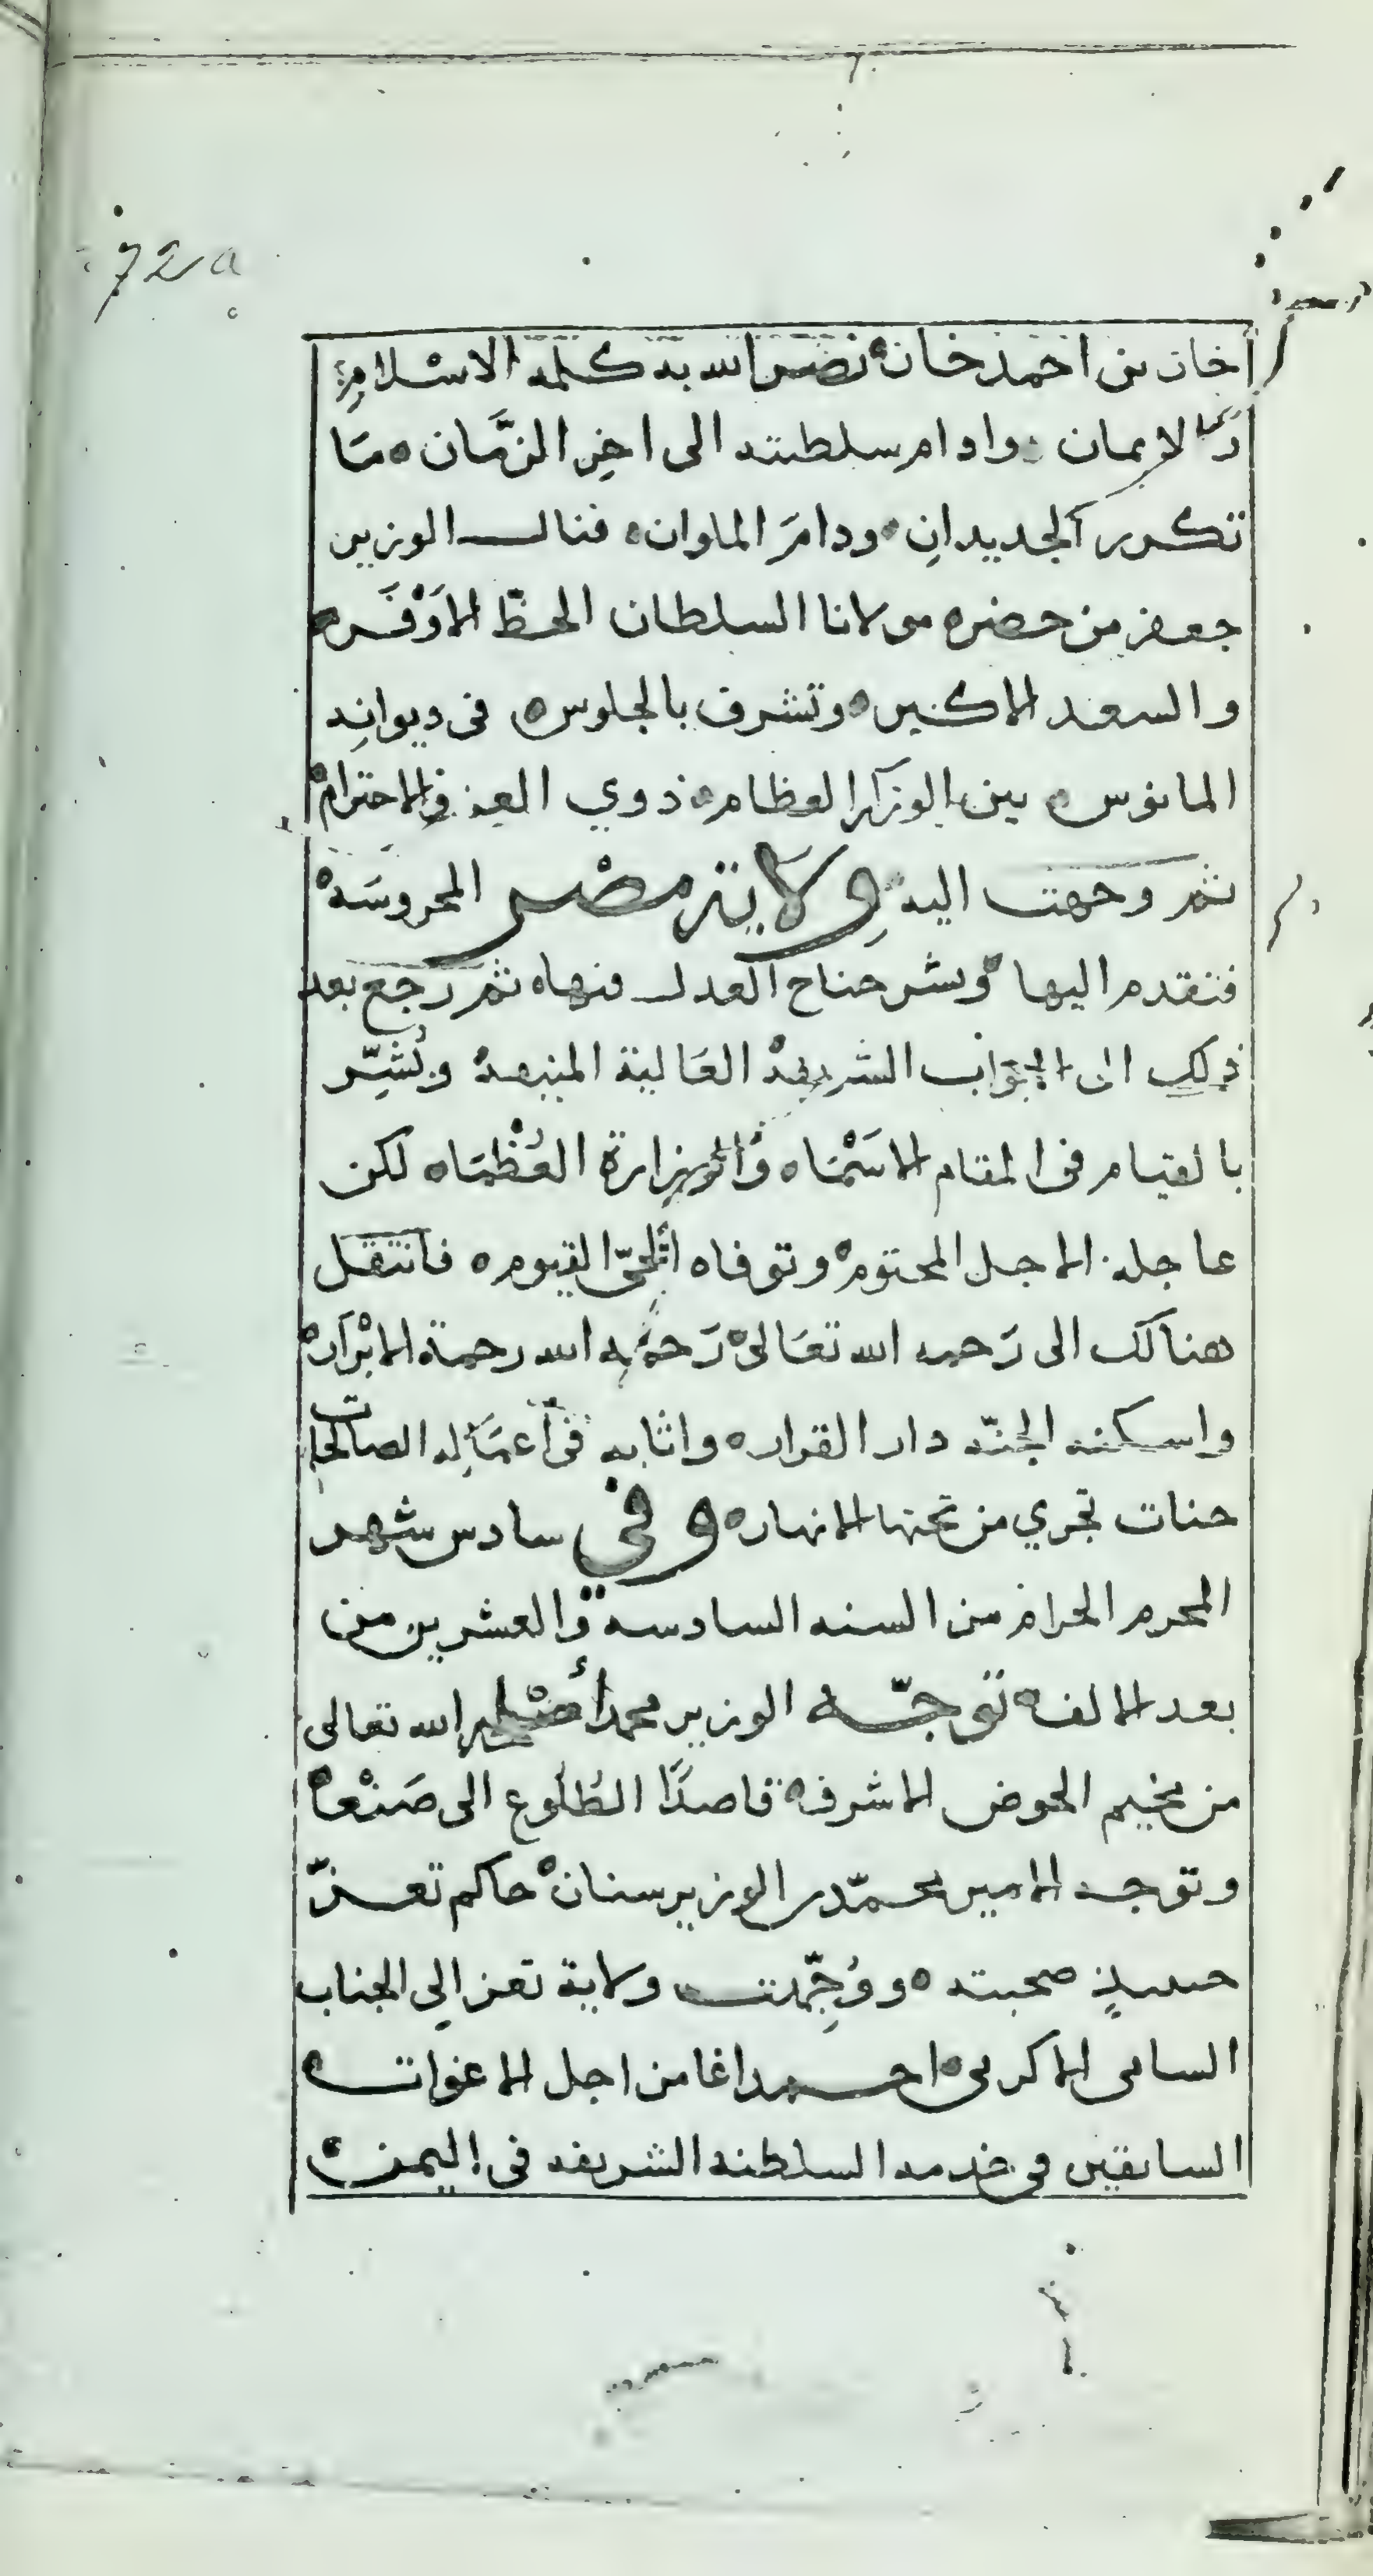 72a
خان بن احمد خان نصر الله به كلمة الاسلام
والايمان وادام سلطنته الى اخر الزَّمان ه مَا
تكرر الجديدانِ ودامَ الملوان ه فنال الوزير
جعفر من حضره مولانا السلطان الحظّ الاَوْفَر ه
والسعد الاكبر ه وتشرف بالجلوس ه فى ديوانِه
المانوس ه بين الوزرا العظام ه ذوي العز والاحترام ه
ثم وجهت اليه وِلَاية مصْر المحروسَه
فتقدم اليها ونشر جناح العدل فيها ه ثم رجع بعد
ذلك الى الابواب الشريفه العَالية المنيعه وبُشِّر
بالقيام فى المقام الاسْمَا ه والوِزارة العُظْمَا ه لكن
عاجله الاجل المحتوم ه وتوفاه الحيّ القيوم ه فانتقل
هنالك الى رَحمه الله تعَالى ه رَحمه الله رحمة الابْرَار ه
واسكنه الجنّه دار القرار ه واثابه فى اَعمَالِه الصالحات
جنات تجري من تحتها الانهار ه وفي سادس شهر
المحرم الحرام من السنه السادسه والعشرين من
بعد الالف ه توجّه الوزير محمد أصلحه الله تعالى
من مخيم الحوض الاشرفه قاصدًا الطُلُوع الى صَنْعَا ه
وتوجه الامير محمّد بن الوزير سنان ه حاكم تعزّ
حينيذٍ صحبته ه ووُجِّهت ولاية تعز اِلى الجناب
السامى الاكرمى ه احمد اغا من اجل الاغوات ه
السابقين فى خدمه السلطنه الشريفه فى اليمن ه